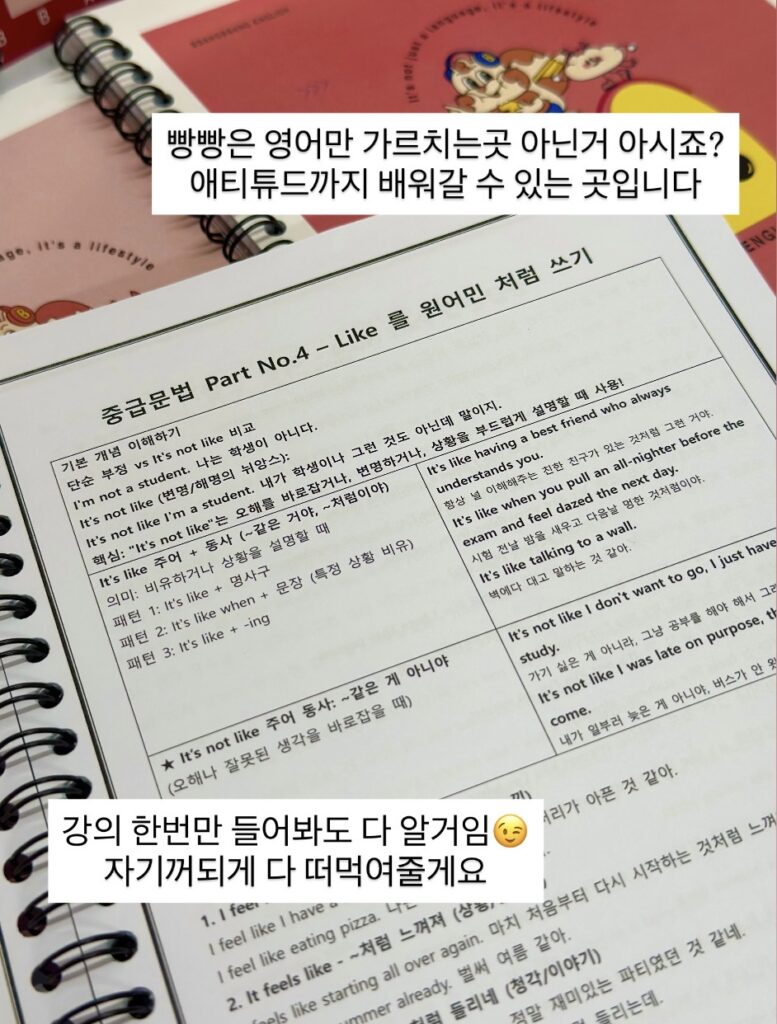 BBANGBBANG ENGLISH
it's not just a language, it's a lifestyle
빵빵은 영어만 가르치는곳 아닌거 아시죠?
애티튜드까지 배워갈 수 있는 곳입니다
age, it's a lifestyle
ENGL
중급문법 Part No.4 – Like 를 원어민 처럼 쓰기
기본 개념 이해하기
단순 부정 vs It's not like 비교
I'm not a student. 나는 학생이 아니다.
It's not like (변명/해명의 뉘앙스):
It's not like I'm a student. 내가 학생이나 그런 것도 아닌데 말이지.
핵심: "It's not like"는 오해를 바로잡거나, 변명하거나, 상황을 부드럽게 설명할 때 사용!
It's like 주어 + 동사 (~같은 거야, ~처럼이야)
의미: 비유하거나 상황을 설명할 때
패턴 1: It's like + 명사구
패턴 2: It's like when + 문장 (특정 상황 비유)
패턴 3: It's like + -ing
It's like having a best friend who always
understands you.
항상 널 이해해주는 친한 친구가 있는 것처럼 그런 거야.
It's like when you pull an all-nighter before the
exam and feel dazed the next day.
시험 전날 밤을 새우고 다음날 멍한 것처럼이야.
It's like talking to a wall.
벽에다 대고 말하는 것 같아.
★ It's not like 주어 동사: ~같은 게 아니야
(오해나 잘못된 생각을 바로잡을 때)
It's not like I don't want to go, I just have
study.
가기 싫은 게 아니라, 그냥 공부를 해야 해서 그
It's not like I was late on purpose, th
come.
내가 일부러 늦은 게 아니야, 버스가 안 왔
리가 아픈 것 같아.
강의 한번만 들어봐도 다 알거임😉
자기꺼되게 다 떠먹여줄게요
1. I feel
I feel like I have a
I feel like eating pizza.
2. It feels like - ~처럼 느껴져 (상황/
feels like starting all over again. 마치 처음부터 다시 시작하는 것처럼 느껴
mmer already. 벌써 여름 같아.
처럼 들리네 (청각/이야기)
정말 재미있는 파티였던 것 같네.
들리는데.